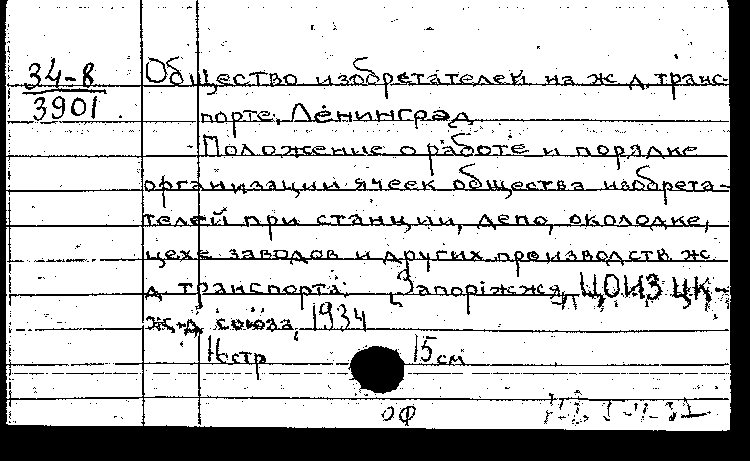 34-8
3901
Общество изобретателей на ж д. транс-
порте, Ленинград
Положение о работе и порядке
организации ячеек общества изобрета-
телей при станции, депо, околодке,
цехе заводов и других производств ж.
д транспорта. Запоріжжя, ЦОИЗ ЦК-
ж-д союза, 1934
16 стр 15 см
ОФ